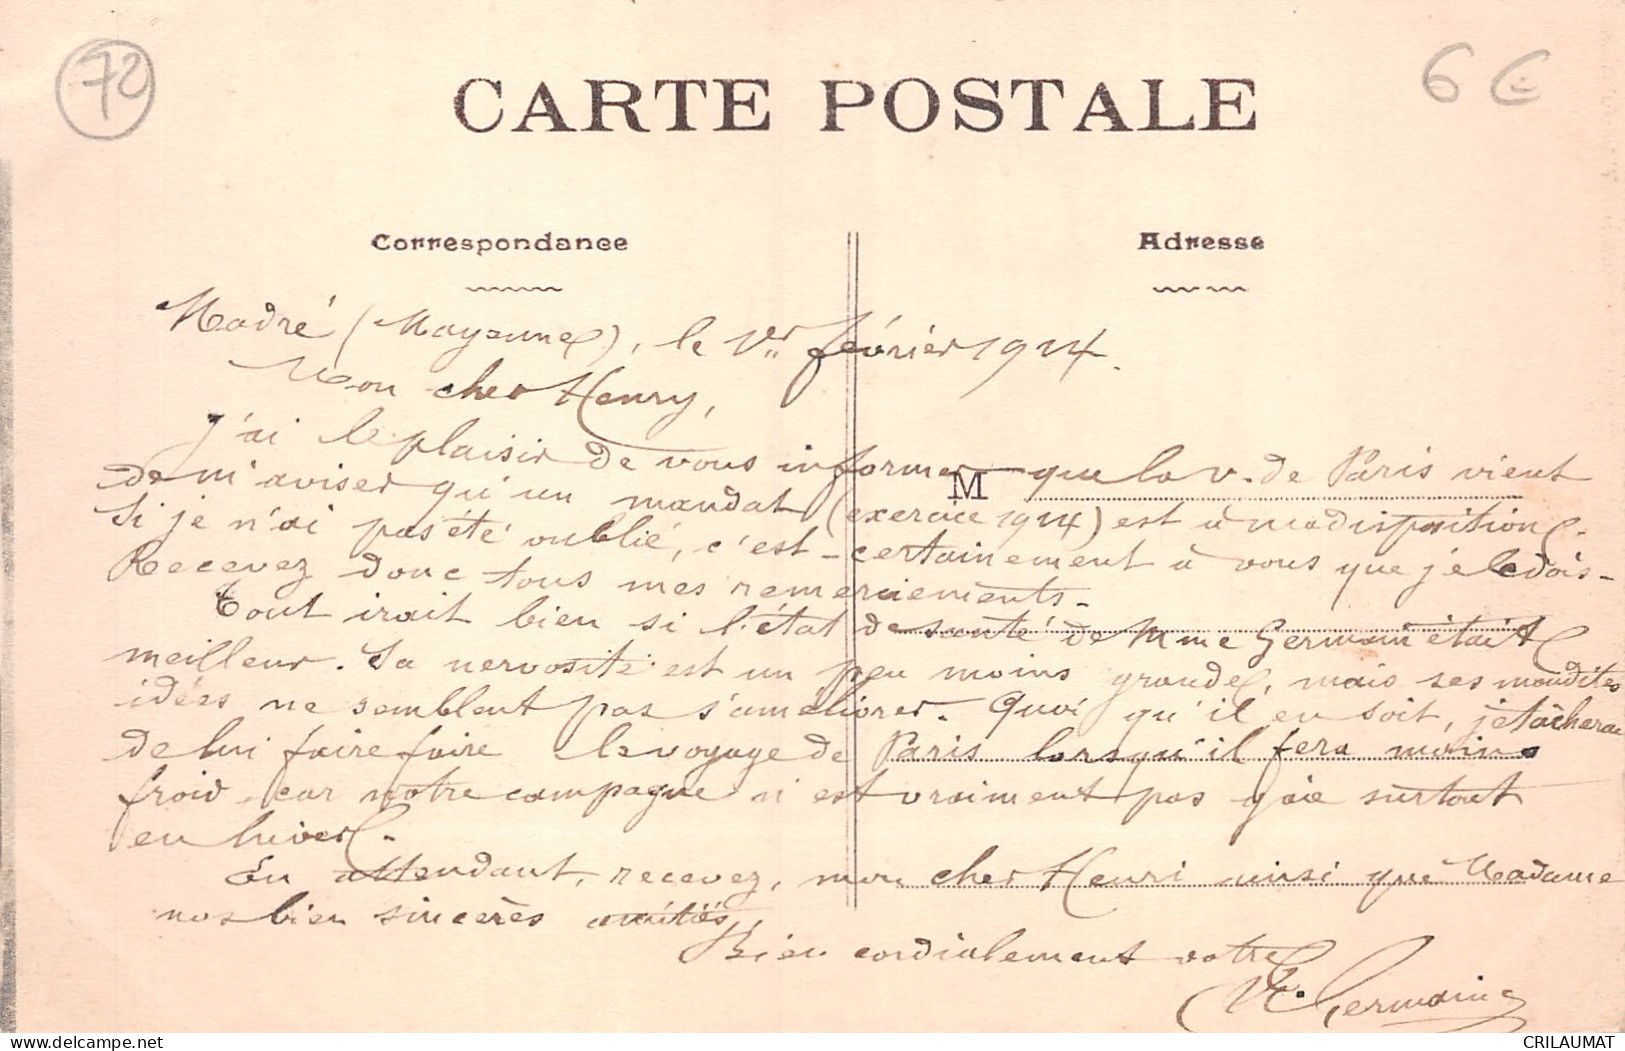 72
6 €
CARTE POSTALE
Correspondance
Adresse
M
Madré (Mayenne), le 1er février 1914.
Mon cher Henry,
J'ai le plaisir de vous informer que la v. de Paris vient
de m'aviser qu'un mandat (exercice 1914) est à ma disposition.
Si je n'ai pas été oublié, c'est certainement à vous que je le dois-
Recevez donc tous mes remerciements.
Tout irait bien si l'état de santé de Mme Germain était
meilleur. Sa nervosité est un peu moins grande, mais ses maudites
idées ne semblent pas s'améliorer. Quoi qu'il en soit, je tâcherai
de lui faire faire le voyage de Paris lorsqu'il fera moins
froid, car notre campagne n'est vraiment pas gaie surtout
en hiver.
En attendant, recevez, mon cher Henri ainsi que Madame
nos bien sincères amitiés
Bien cordialement votre
Germain
CRILAUMAT